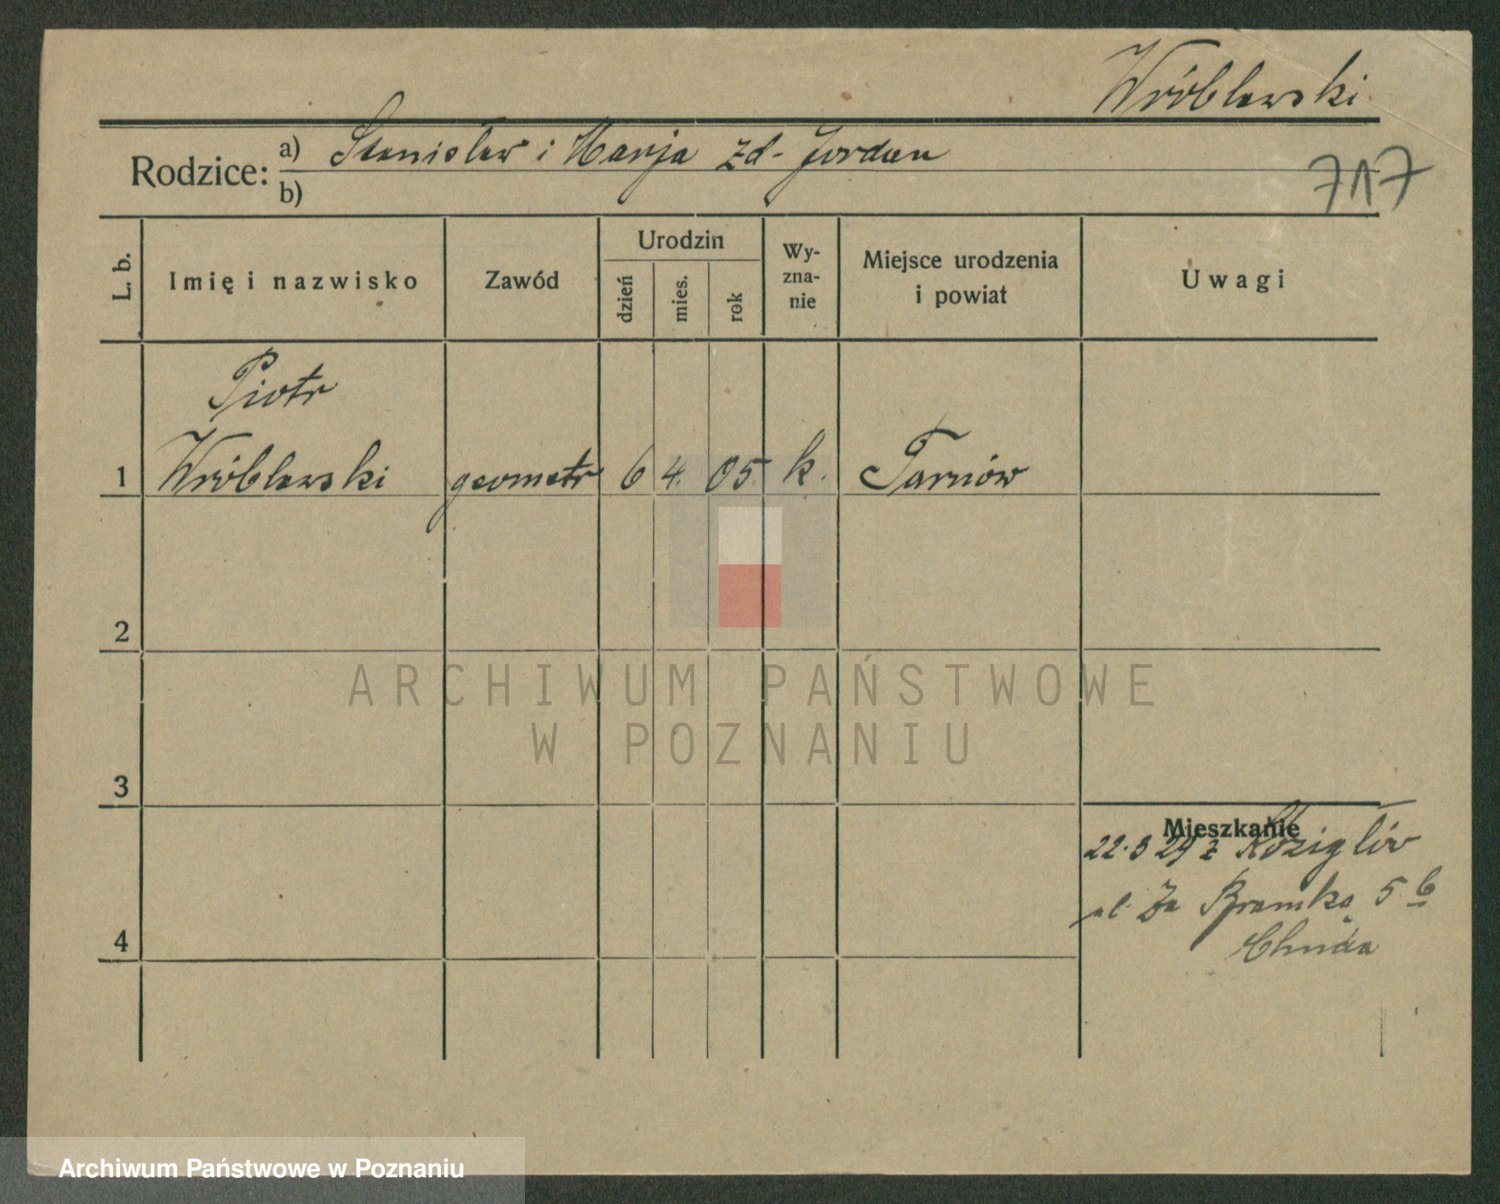 Wróblewski
Rodzice: a) Stanisław i Marja zd- Jordan
b)
717
L. b.
Imię i nazwisko
Zawód
Urodzin
dzień
mies.
rok
Wy-
zna-
nie
Miejsce urodzenia
i powiat
Uwagi
Piotr
1 Wróblewski geometr 6 4. 05. k. Tarnów
2
ARCHIWUM PAŃSTWOWE
W POZNANIU
3
Mieszkanie
22.3 29 z Koziglów
ul. Za Bramką 5 b
4
Archiwum Państwowe w Poznaniu